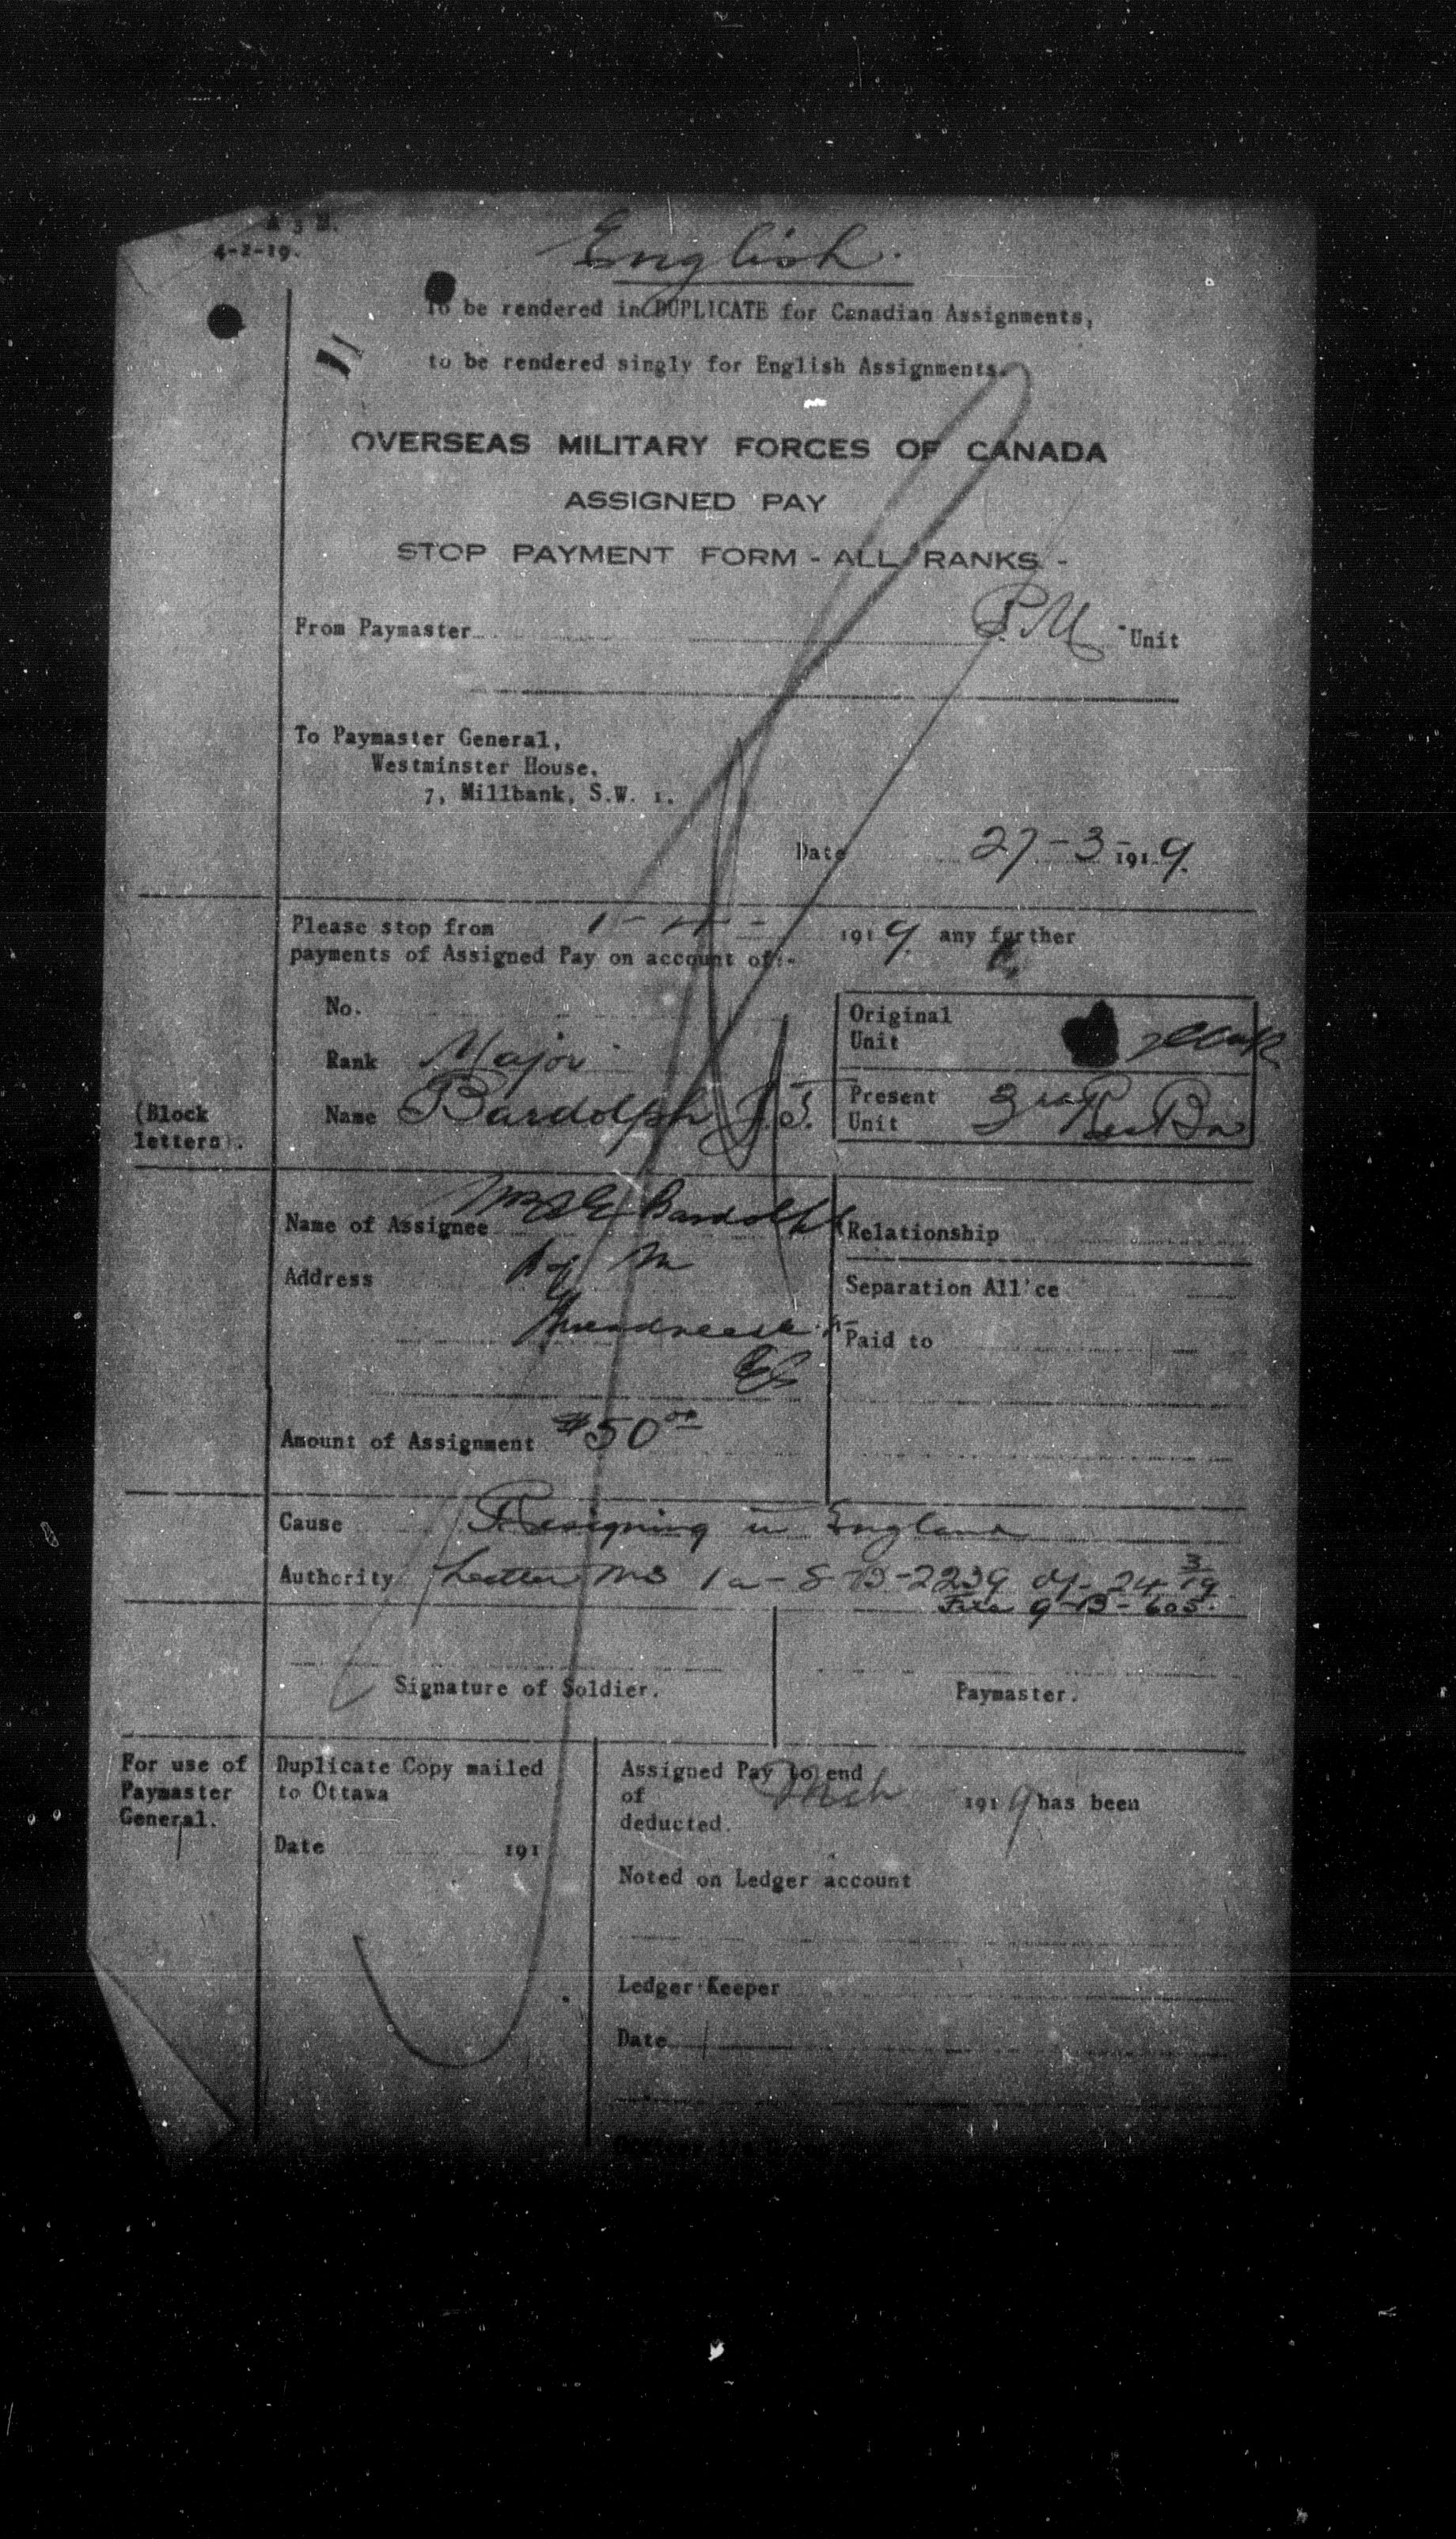 A 3 B.
4-2-19.
English.
To be rendered in DUPLICATE for Canadian Assignments,
to be rendered singly for English Assignments.
OVERSEAS MILITARY FORCES OF CANADA
ASSIGNED PAY
STOP PAYMENT FORM - ALL RANKS -
From Paymaster P.M. Unit
To Paymaster General,
Westminster House,
7, Millbank, S.W. 1.
Date 27-3-1919.
Please stop from 1-4- 1919 any further
payments of Assigned Pay on account of:-
No.
Original
Unit
Rank Major
(Block
letters).
Name Bardolph J.T.
Present
Unit Res Bn
Name of Assignee Mrs E Bardolph
Relationship
Address B of M
Separation All'ce
Threadneedle St
Paid to
EC
Amount of Assignment $50.00
Cause Resigning in England
Authority Letter MS 1a-8-B-2239 of 24/3/19
File 9-B-605.
Signature of Soldier.
Paymaster.
For use of
Paymaster
General.
Duplicate Copy mailed
to Ottawa
Date 191
Assigned Pay to end
of Mch 1919 has been
deducted.
Noted on Ledger account
Ledger Keeper
Date